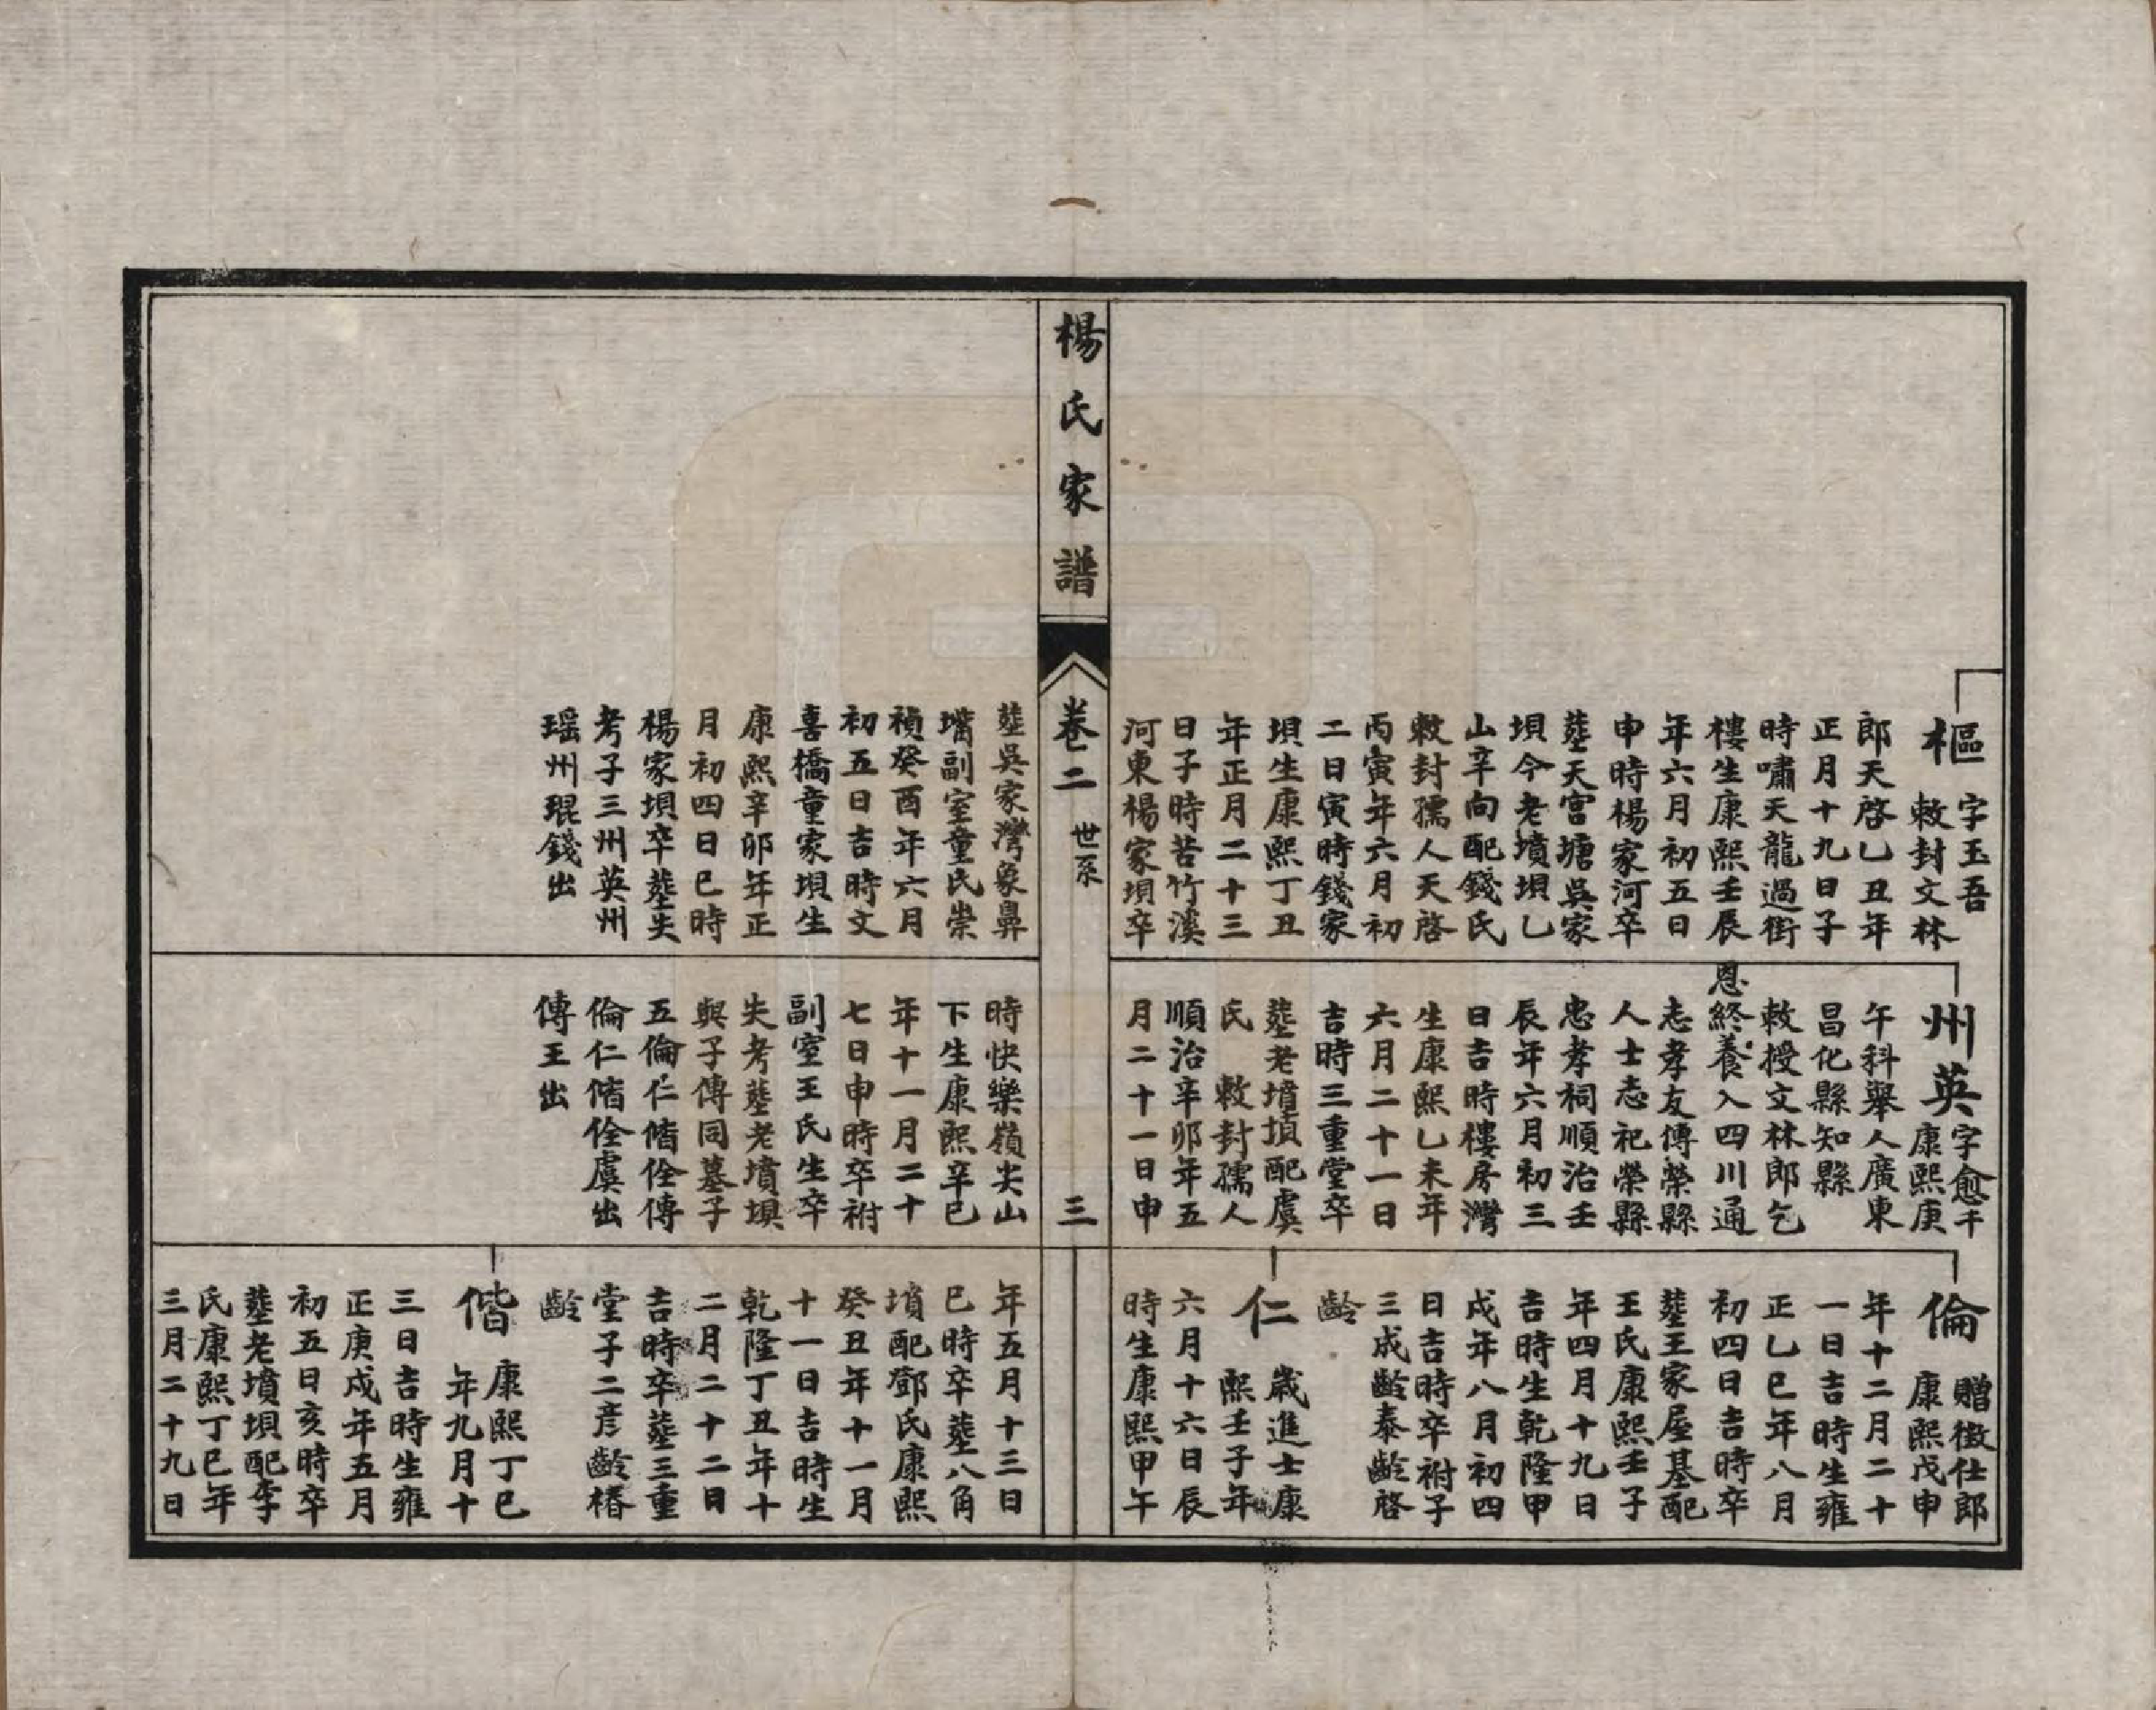 樞
字玉吾
敕封文林
郎天啓乙丑年
正月十九日子
時嘯天龍過街
樓生康熙壬辰
年六月初五日
申時楊家河卒
塟天宮塘吳家
垻今老墳垻乙
山辛向配錢氏
敕封孺人天啓
丙寅年六月初
二日寅時錢家
垻生康熙丁丑
年正月二十三
日子時苦竹溪
河東楊家垻卒
塟吳家灣象鼻
嘴副室童氏崇
禎癸酉年六月
初五日吉時文
喜橋童家垻生
康熙辛卯年正
月初四日巳時
楊家垻卒塟失
考子三州英州
瑶州琨錢出
州英
字愈千
康熙庚
午科舉人廣東
昌化縣知縣
敕授文林郎乞
恩終養入四川通
志孝友傳榮縣
人士志祀榮縣
忠孝祠順治壬
辰年六月初三
日吉時樓房灣
生康熙乙未年
六月二十一日
吉時三重堂卒
塟老墳垻配虞
氏 敕封孺人
順治辛卯年五
月二十一日申
時快樂嶺尖山
下生康熙辛巳
年十一月二十
七日申時卒祔
副室王氏生卒
失考塟老墳垻
與子傳同墓子
五倫仁偕佺傳
倫仁偕佺虞出
傳王出
倫
贈徴仕郎
康熙戊申
年十二月二十
一日吉時生雍
正乙巳年八月
初四日吉時卒
塟王家屋基配
王氏康熙壬子
年四月十九日
吉時生乾隆甲
戌年八月初四
日吉時卒祔子
三成齡泰齡啓
齡
仁
歲進士康
熙壬子年
六月十六日辰
時生康熙甲午
年五月十三日
巳時卒塟八角
墳配鄧氏康熙
癸丑年十一月
十一日吉時生
乾隆丁丑年十
二月二十二日
吉時卒塟三重
堂子二彦齡椿
齡
偕
康熙丁巳
年九月十
三日吉時生雍
正庚戌年五月
初五日亥時卒
塟老墳垻配李
氏康熙丁巳年
三月二十九日
楊氏家譜
卷二
世系
三